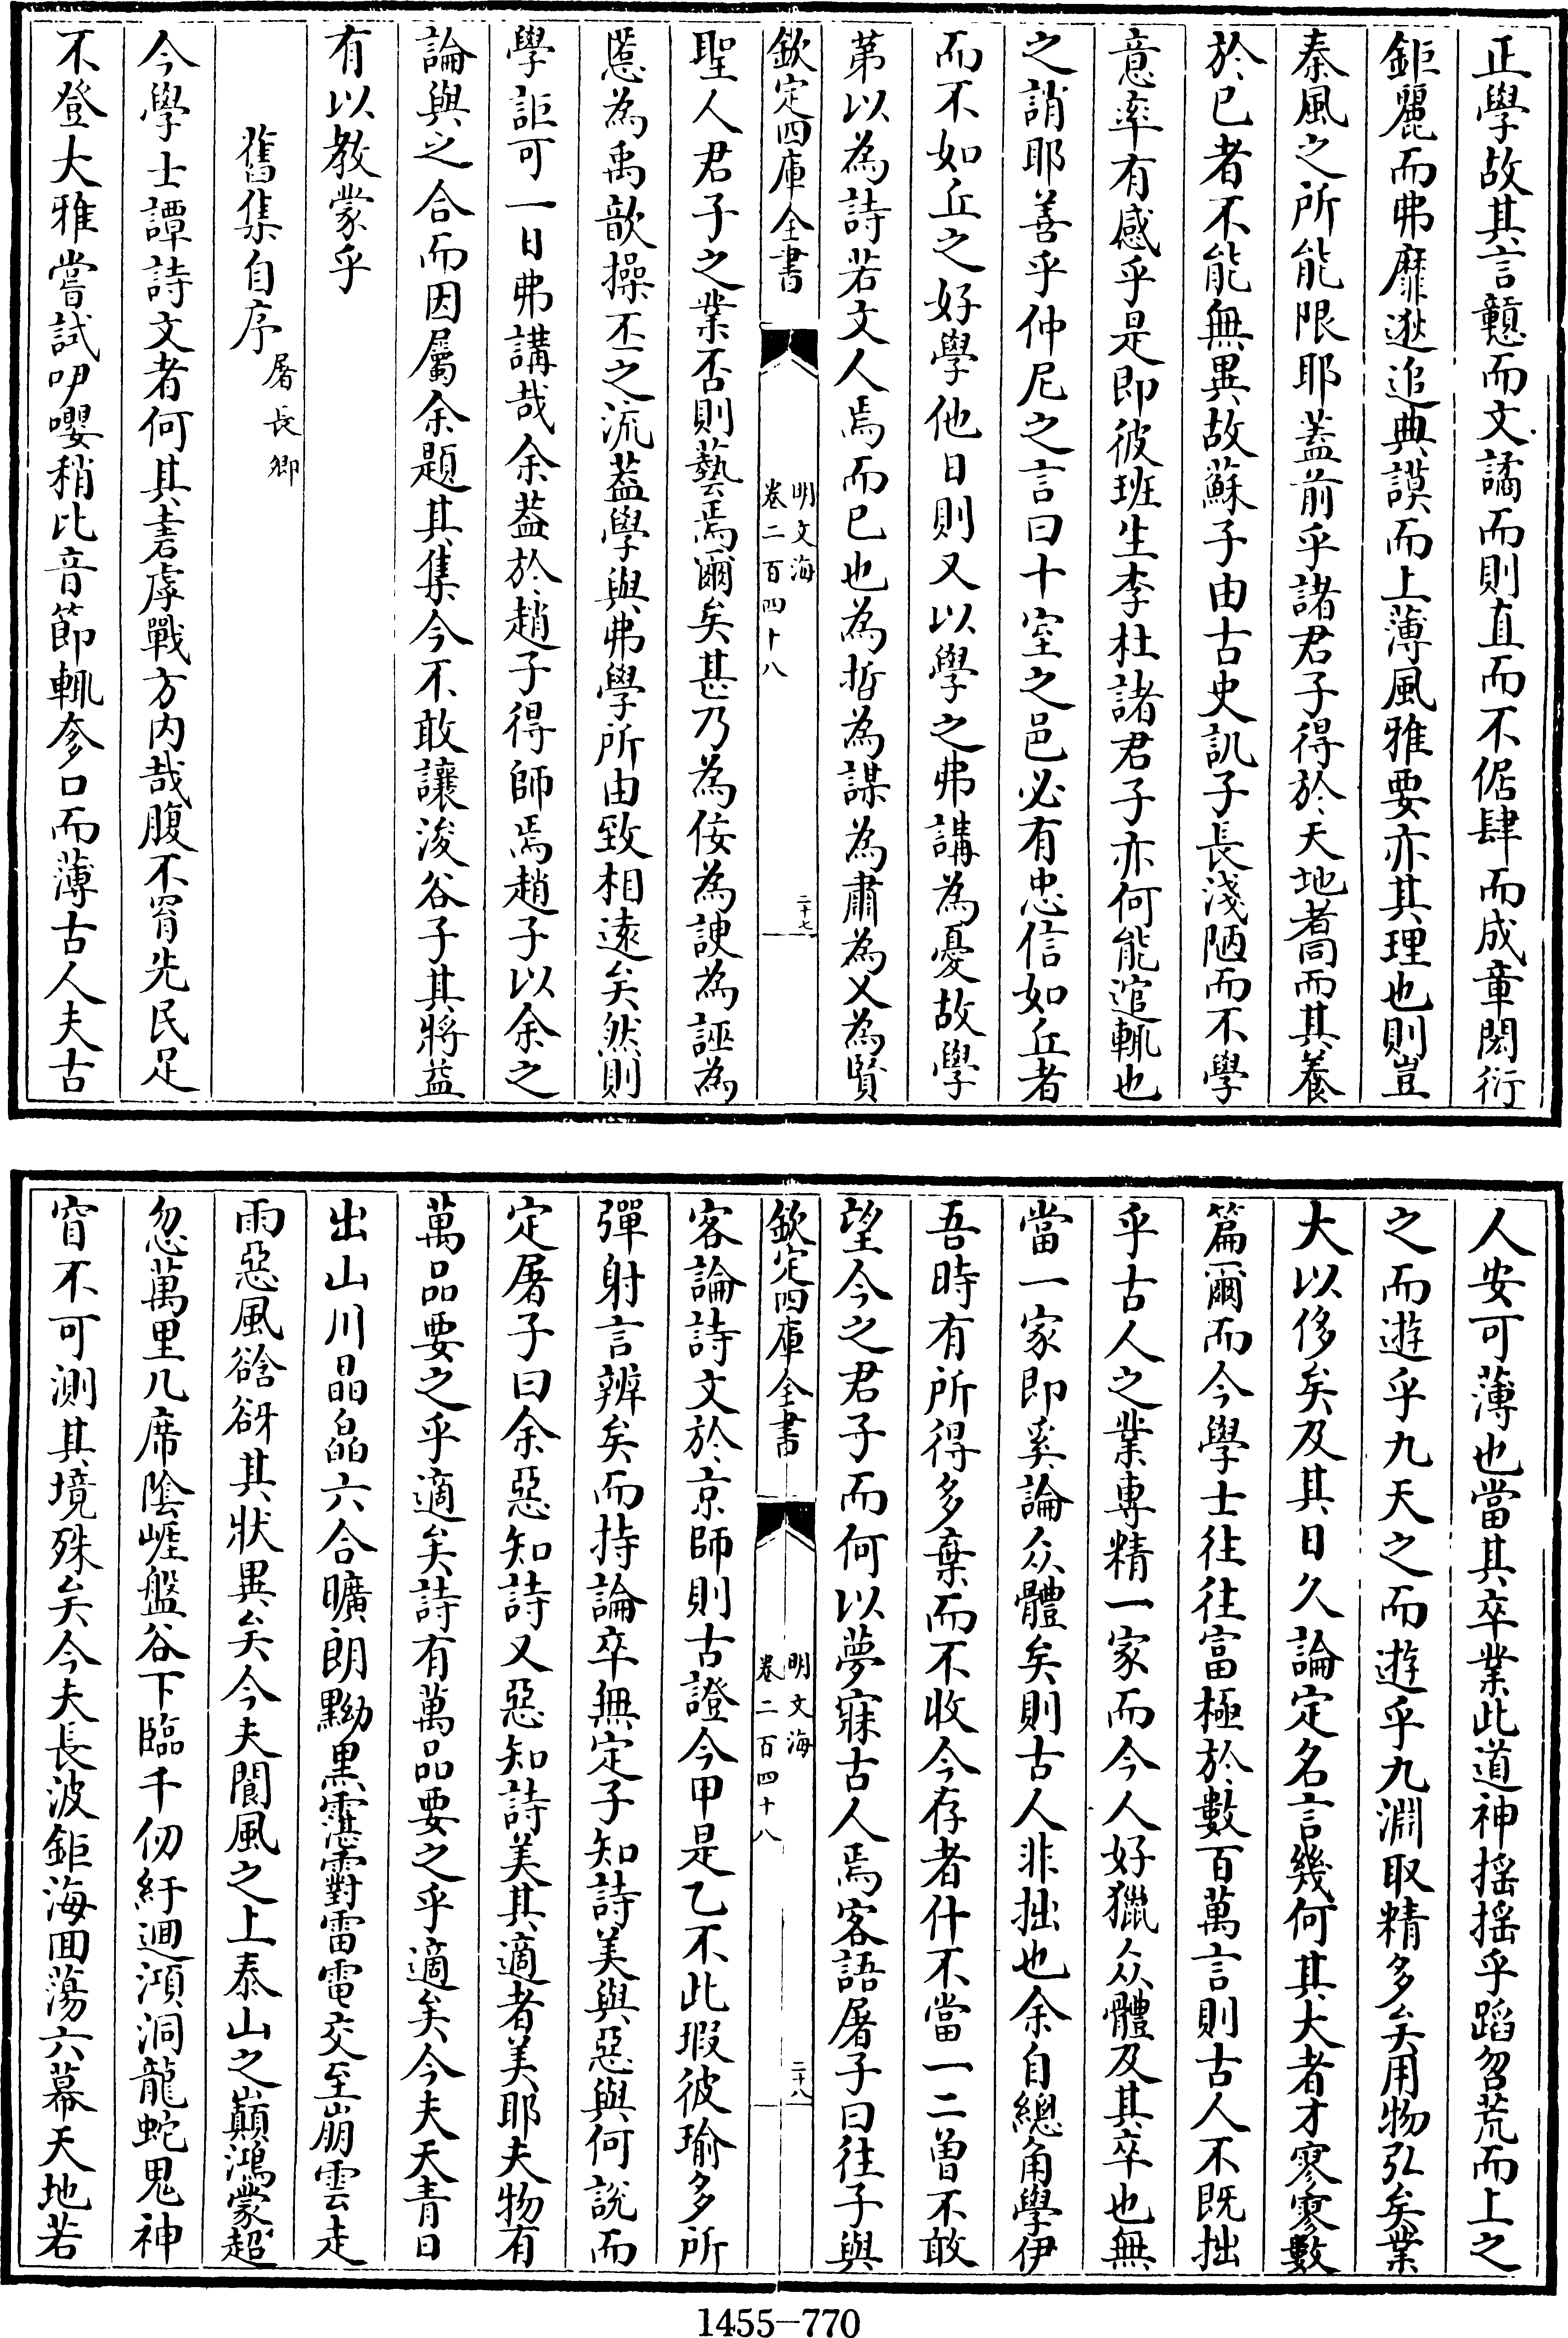 正學故其言戇而文譎而則直而不倨肆而成章閎衍
鉅麗而弗靡逖追典謨而上薄風雅要亦其理也則豈
秦風之所能限耶蓋前乎諸君子得於天地者同而其養
於已者不能無異故蘇子由古史訊子長淺陋而不學
意率有感乎是即彼班生李杜諸君子亦何能逭輒也
之誚耶善乎仲尼之言曰十室之邑必有忠信如丘者
而不如丘之好學他日則又以學之弗講為憂故學
第以為詩若文人焉而已也為哲為謀為肅為乂為賢
欽定四庫全書
明文海
卷二百四十八
二十七
聖人君子之業否則藝焉爾矣甚乃為佞為諛為誣為
慝為禹歆操丕之流葢學與弗學所由致相遠矣然則
學詎可一日弗講哉余葢於趙子得師焉趙子以余之
論與之合而因屬余題其集今不敢讓浚谷子其將益
有以教蒙乎
舊集自序屠長卿
今學士譚詩文者何其書虖戰方内哉腹不窅先民足
不登大雅嘗試吚嚶稍比音節輒奓口而薄古人夫古
人安可薄也當其卒業此道神搖搖乎蹈曶荒而上之
之而遊乎九天之而遊乎九淵取精多矣用物弘矣業
大以侈矣及其日久論定名言幾何其大者才寥寥數
篇爾而今學士往往富極於數百萬言則古人不既拙
乎古人之業專精一家而今人好獵众體及其卒也無
當一家即奚論众體矣則古人非拙也余自總角學伊
吾時有所得多棄而不收今存者什不當一二曾不敢
望今之君子而何以夢寐古人焉客語屠子曰往子與
欽定四庫全書
明文海
卷二百四十八
二十八
客論詩文於京師則古證今甲是乙不此瑕彼瑜多所
彈射言辨矣而持論卒無定子知詩美與惡與何說而
定屠子曰余惡知詩又惡知詩美其適者美耶夫物有
萬品要之乎適矣詩有萬品要之乎適矣今夫天青日
出山川晶皛六合曠朗黝黑霮䨴雷電交至崩雲走
雨惡風谽谺其狀異矣今夫閬風之上泰山之巔鴻蒙超
忽萬里几席陰崕盤谷下臨千仞紆迴澒洞龍蛇鬼神
窅不可測其境殊矣今夫長波鉅海囬蕩六幕天地若
1455-770